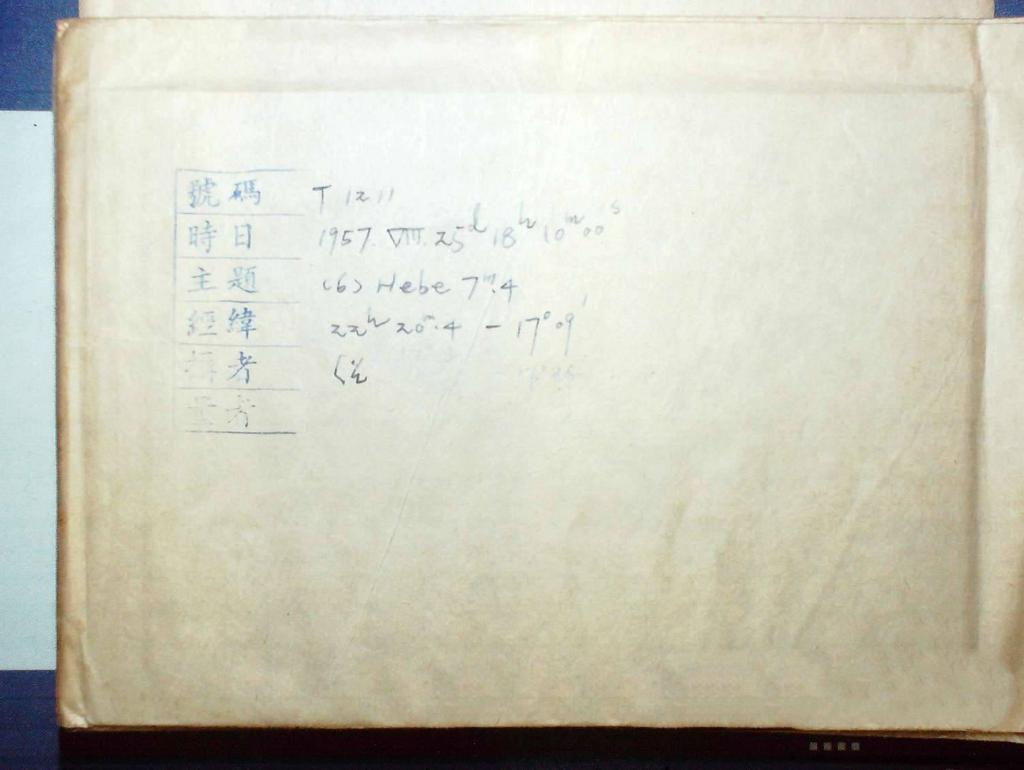 號碼 T 1211
時日 1957. VIII. 25ᵈ 18ʰ 10ᵐ 00ˢ
主題 (6) Hebe 7ᵐ.4
經緯 22ʰ 20ᵐ.4 -17°09′
者
者